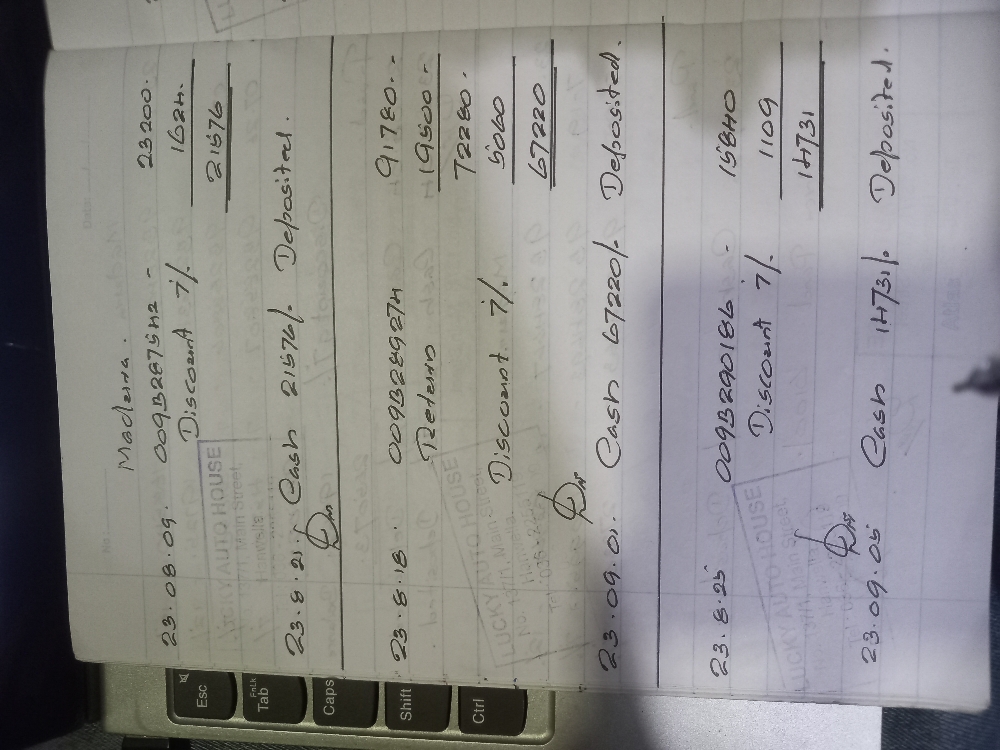 Madena.
23.08.09. 009B287542 - 23200.
Discount 7%. 1624.
21576
23.8.21. Cash 21576/. Deposited.
23.8.18. 009B289274 91780.-
Return 19500.-
72280.
Discount. 7%. 5060
67220
23.09.01. Cash 67220/. Deposited.
23.8.25 009B290186 - 15840
Discount 7%. 1109
14731
23.09.05 Cash 14731/. Deposited.
LUCKY AUTO HOUSE
Main Street,
LUCKY AUTO HOUSE
Main Street,
LUCKY AUTO HOUSE
Main Street,
Esc
FnLk
Tab
Caps
Shift
Ctrl